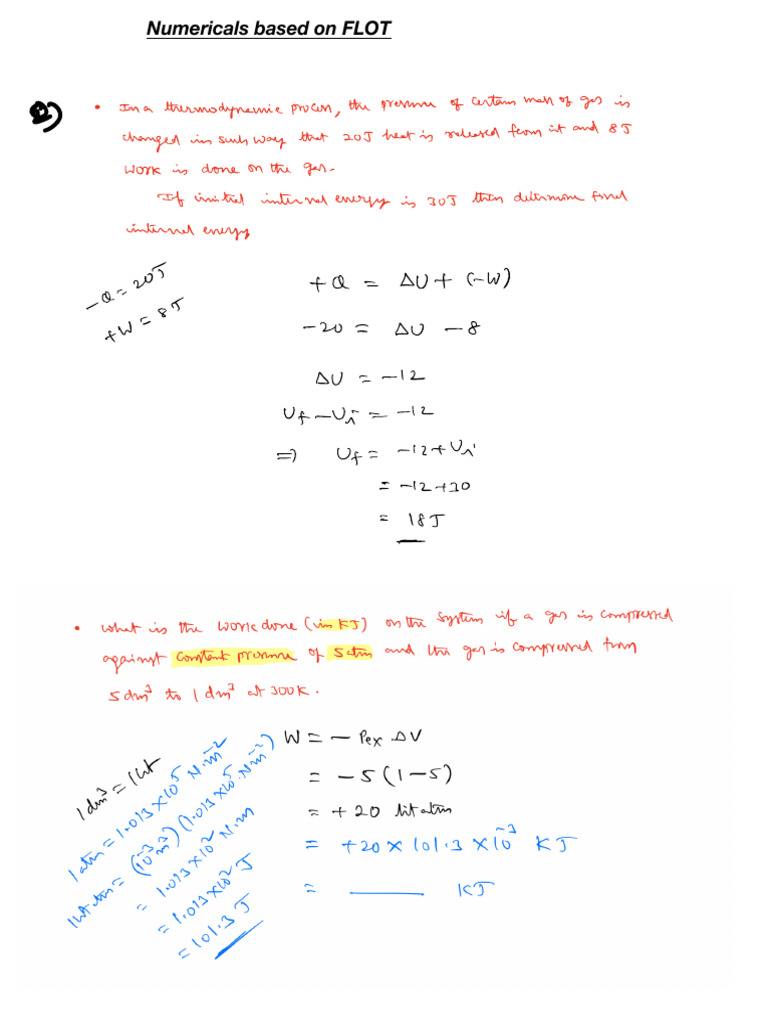 Numericals based on FLOT
Q)
• In a thermodynamic process, the pressure of certain mass of gas is
changed in such way that 20J heat is released from it and 8J
work is done on the gas.
If initial internal energy is 30J then determine final
internal energy
-Q = 20J
+W = 8J
+Q = ΔU + (-W)
-20 = ΔU - 8
ΔU = -12
Uf - Ui = -12
=> Uf = -12 + Ui
= -12+30
= 18J
• What is the work done (in KJ) on the system if a gas is compressed
against constant pressure of 5 atm and the gas is compressed from
5 dm³ to 1 dm³ at 300K.
1 dm³ = 1 lit
1 atm = 1.013 × 10⁵ N.m⁻²
1 lit atm = (10⁻³ m³) (1.013 × 10⁵ N m⁻²)
= 1.013 × 10² N.m
= 1.013 × 10² J
= 101.3 J
W = - Pex ΔV
= -5(1-5)
= +20 lit atm
= +20 × 101.3 × 10⁻³ KJ
= ____ KJ